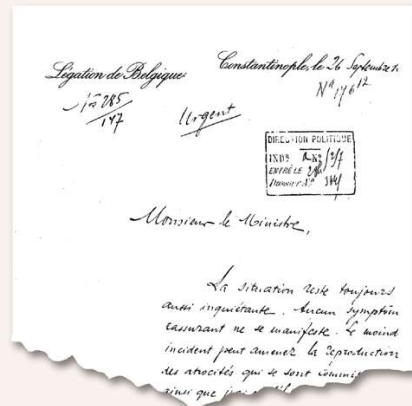 Légation de Belgique
Constantinople, le 26 Septembre
Urgent
DIRECTION POLITIQUE
Monsieur le Ministre,
La situation reste toujours
aussi inquiétante. Aucun symptôm
rassurant ne se manifeste. Le moind
incident peut amener la reproduction
des atrocités qui se sont commis
ainsi que